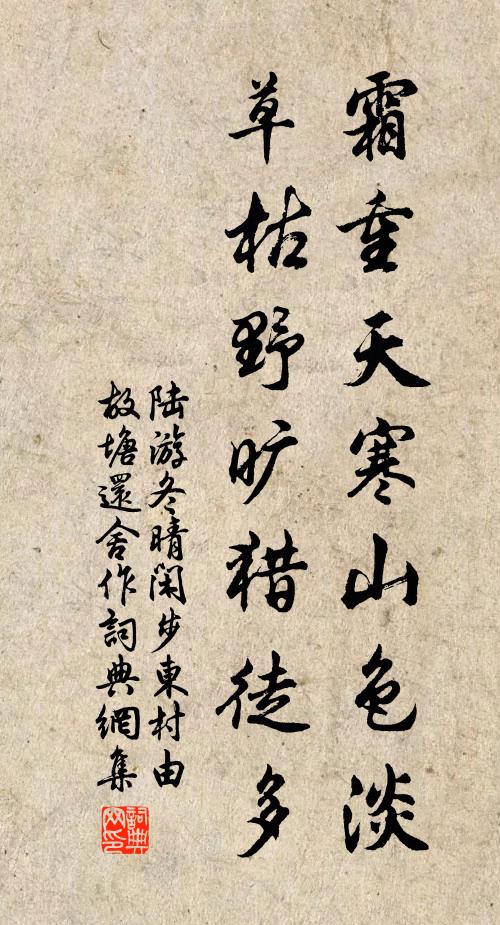 霜重天寒山色淡
草枯野旷猎徒多
陆游冬晴闲步東村由
故塘還舍作詞典網集
詞典网印